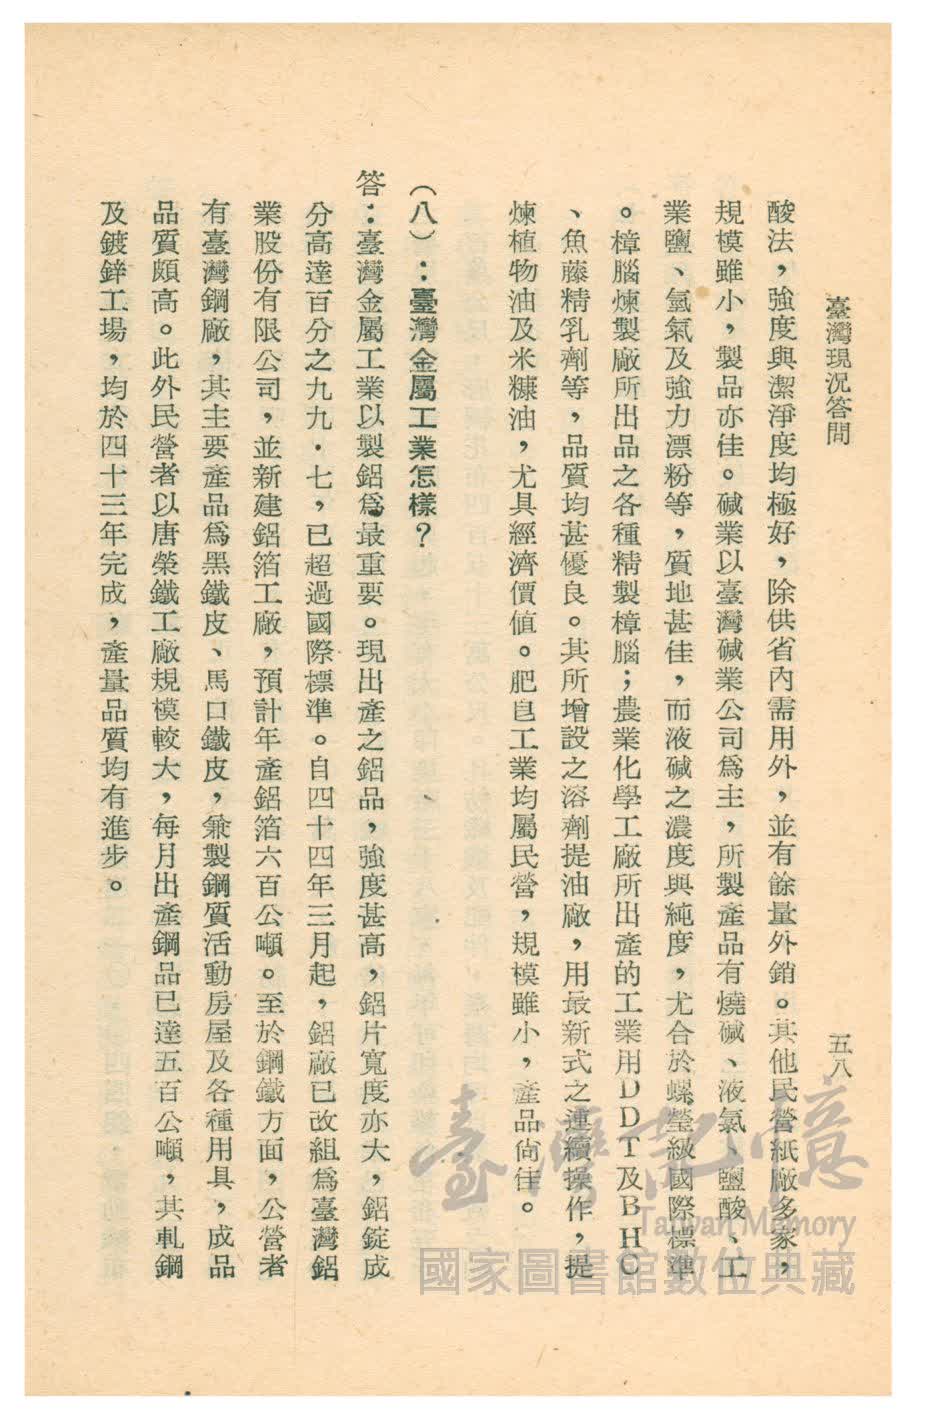 臺灣現況答問
五八
酸法，強度與潔淨度均極好，除供省內需用外，並有餘量外銷。其他民營紙廠多家，
規模雖小，製品亦佳。碱業以臺灣碱業公司爲主，所製產品有燒碱、液氯、鹽酸、工
業鹽、氫氣及強力漂粉等，質地甚佳，而液碱之濃度與純度，尤合於螺縈級國際標準
。樟腦煉製廠所出品之各種精製樟腦；農業化學工廠所出產的工業用DDT及BHC
、魚藤精乳劑等，品質均甚優良。其所增設之溶劑提油廠，用最新式之連續操作，提
煉植物油及米糠油，尤具經濟價值。肥皂工業均屬民營，規模雖小，產品尙佳。
（八）：臺灣金屬工業怎樣？
答：臺灣金屬工業以製鋁爲最重要。現出產之鋁品，強度甚高，鋁片寬度亦大，鋁錠成
分高達百分之九九．七，已超過國際標準。自四十四年三月起，鋁廠已改組爲臺灣鋁
業股份有限公司，並新建鋁箔工廠，預計年產鋁箔六百公噸。至於鋼鐵方面，公營者
有臺灣鋼廠，其主要產品爲黑鐵皮、馬口鐵皮，兼製鋼質活動房屋及各種用具，成品
品質頗高。此外民營者以唐榮鐵工廠規模較大，每月出產鋼品已達五百公噸，其軋鋼
及鍍鋅工場，均於四十三年完成，產量品質均有進步。
臺灣記憶
Taiwan Memory
國家圖書館數位典藏